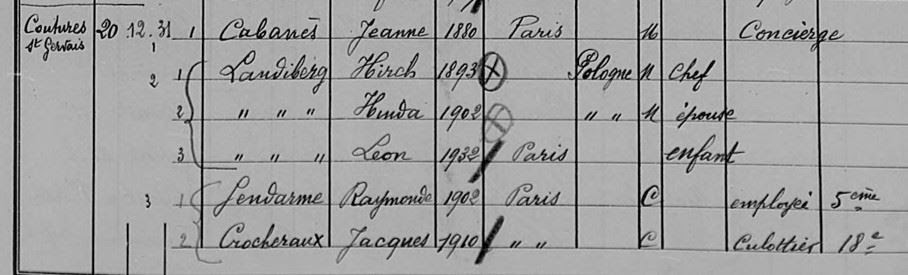 Coutures St Gervais 20 12 31 1 1 Cabanès Jeanne 1880 Paris M Concierge
2 1 Landiberg Hirch 1893 Pologne M chef
2 " " " Hinda 1902 " " M épouse
3 " " " Léon 1932 Paris enfant
3 1 Gendarme Raymonde 1902 Paris C employée 5ème
2 Crocheraux Jacques 1910 " " C Culottier 18e